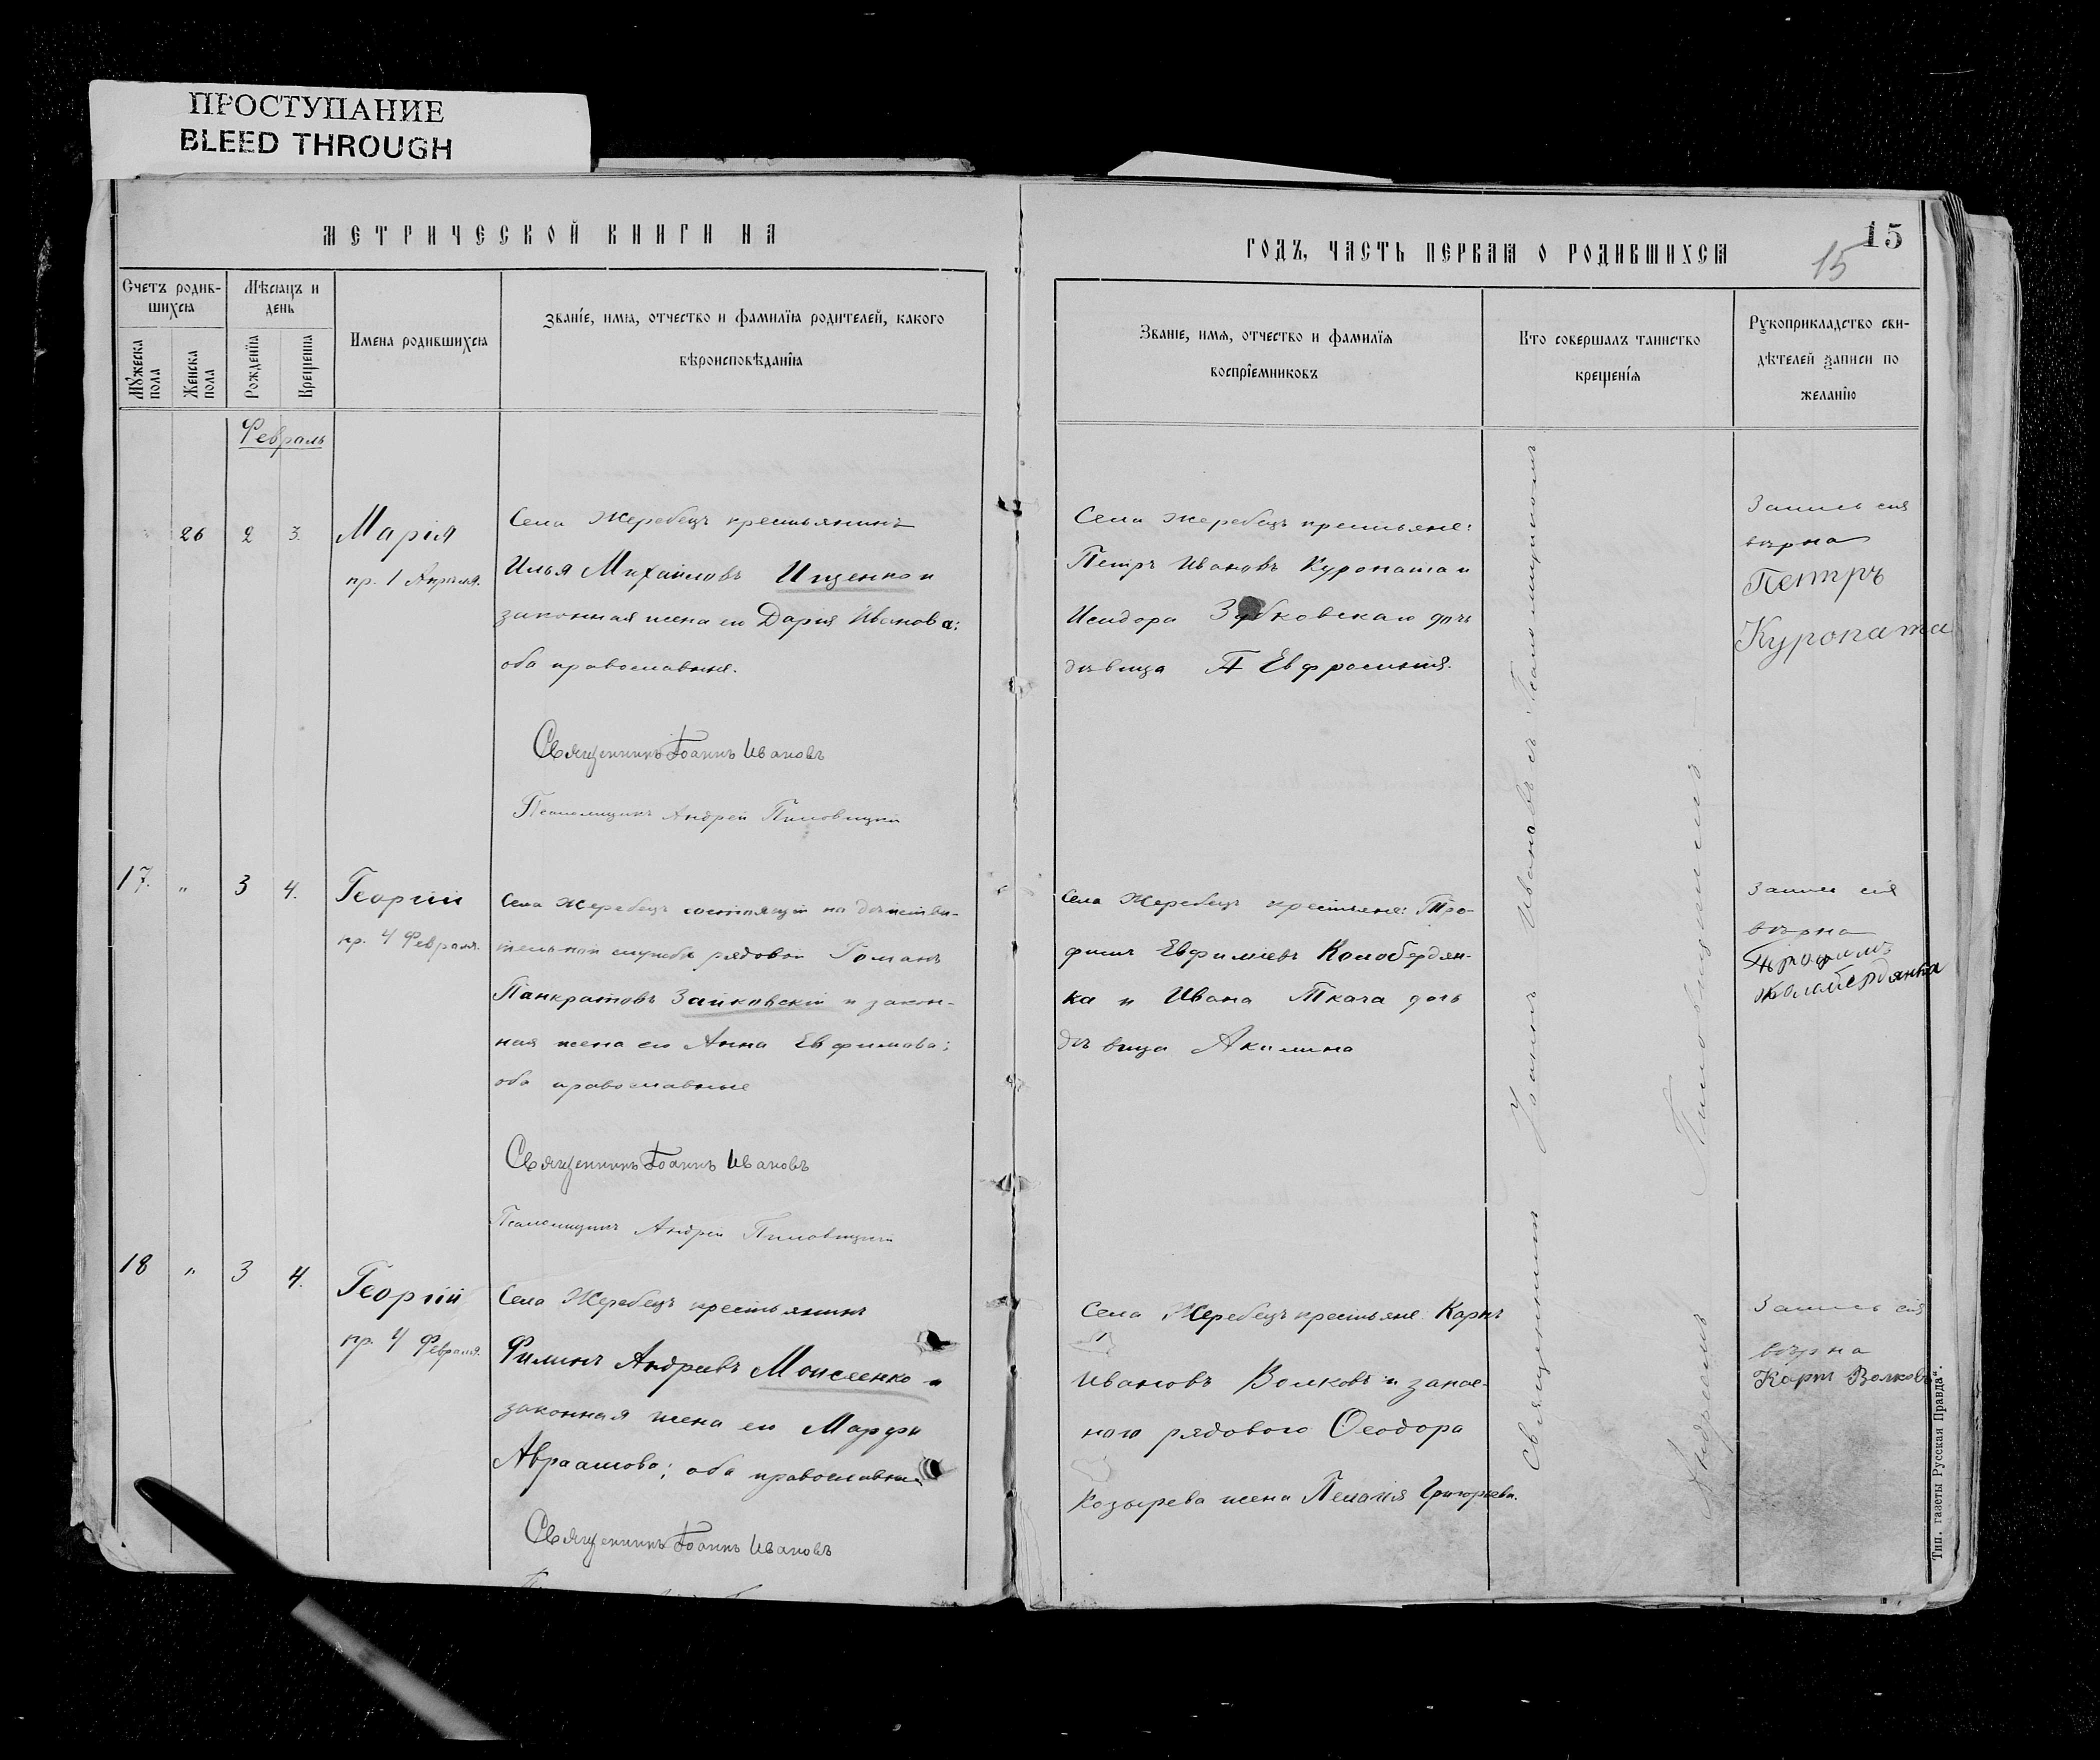 ПРОСТУПАНИЕ
BLEED THROUGH
МЕТРИЧЕСКОЙ КНИГИ НА
Счетъ родив-
шихся
Мѣсяцъ и
день
Мужеска
пола
Женска
пола
Рожденія
Крещенія
Имена родившихся
Званіе, имя, отчество и фамилія родителей, какого
вѣроисповѣданія
Февраль
26 2 3. Марія
пр. 1 Апрѣля.
Села Жеребецъ крестьянинъ
Илья Михайловъ Ищенко и
законная жена его Дарія Иванова;
оба православные.
Священникъ Іоаннъ Ивановъ
Псаломщикъ Андрей Пиловицкій
17. " 3 4. Георгій
пр. 4 Февраля.
Села Жеребецъ состоящій на дѣйстви-
тельной службѣ рядовой Романъ
Панкратовъ Зайковскій и закон-
ная жена его Анна Евфимова;
оба православные
Священникъ Іоаннъ Ивановъ
Псаломщикъ Андрей Пиловицкій
18 " 3 4. Георгій
пр. 4 Февраля.
Села Жеребецъ крестьянинъ
Филипъ Андреевъ Моисеенко и
законная жена его Марфа
Авраамова; оба православные
Священникъ Іоаннъ Ивановъ
ГОДЪ, ЧАСТЬ ПЕРВАЯ О РОДИВШИХСЯ
15
15
Званіе, имя, отчество и фамилія
воспріемниковъ
Кто совершалъ таинство
крещенія
Рукоприкладство сви-
дѣтелей записи по
желанію
Села Жеребецъ крестьяне:
Петръ Ивановъ Куропата и
Исидора Зубковскаго дочь
дѣвица Евфросинія.
Запись сія
вѣрна
Петръ
Куропата
Села Жеребецъ крестьяне: Тро-
фимъ Евфиміевъ Колобердян-
ка и Ивана Ткача дочь
дѣвица Акилина
Запись сія
вѣрна
Трофимъ
Колабердянка
Села Жеребецъ крестьяне Карпъ
Ивановъ Волковъ и запас-
ного рядового Ѳеодора
Козырева жена Пелагія Григорьева.
Запись сія
вѣрна
Карпъ Волковъ
Священникъ Іоаннъ Ивановъ съ Псаломщикомъ
Андреемъ Пиловицкимъ.
Тип. газеты Русская Правда".